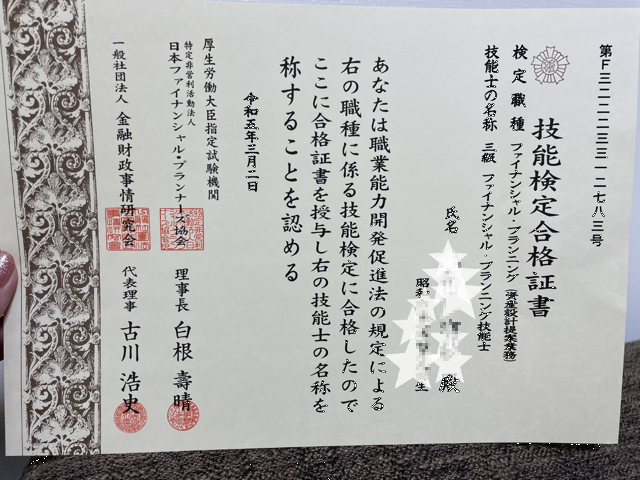 第F三二二二三三一二七八三号
技能検定合格証書
検定職種 ファイナンシャル・プランニング(資産設計提案業務)
技能士の名称 三級 ファイナンシャル・プランニング技能士
氏名 殿
昭和 生
あなたは職業能力開発促進法の規定による
右の職種に係る技能検定に合格したので
ここに合格証書を授与し右の技能士の名称を
称することを認める
令和五年三月二日
厚生労働大臣指定試験機関
特定非営利活動法人
日本ファイナンシャル・プランナーズ協会 理事長 白根 壽晴
一般社団法人 金融財政事情研究会 代表理事 古川 浩史